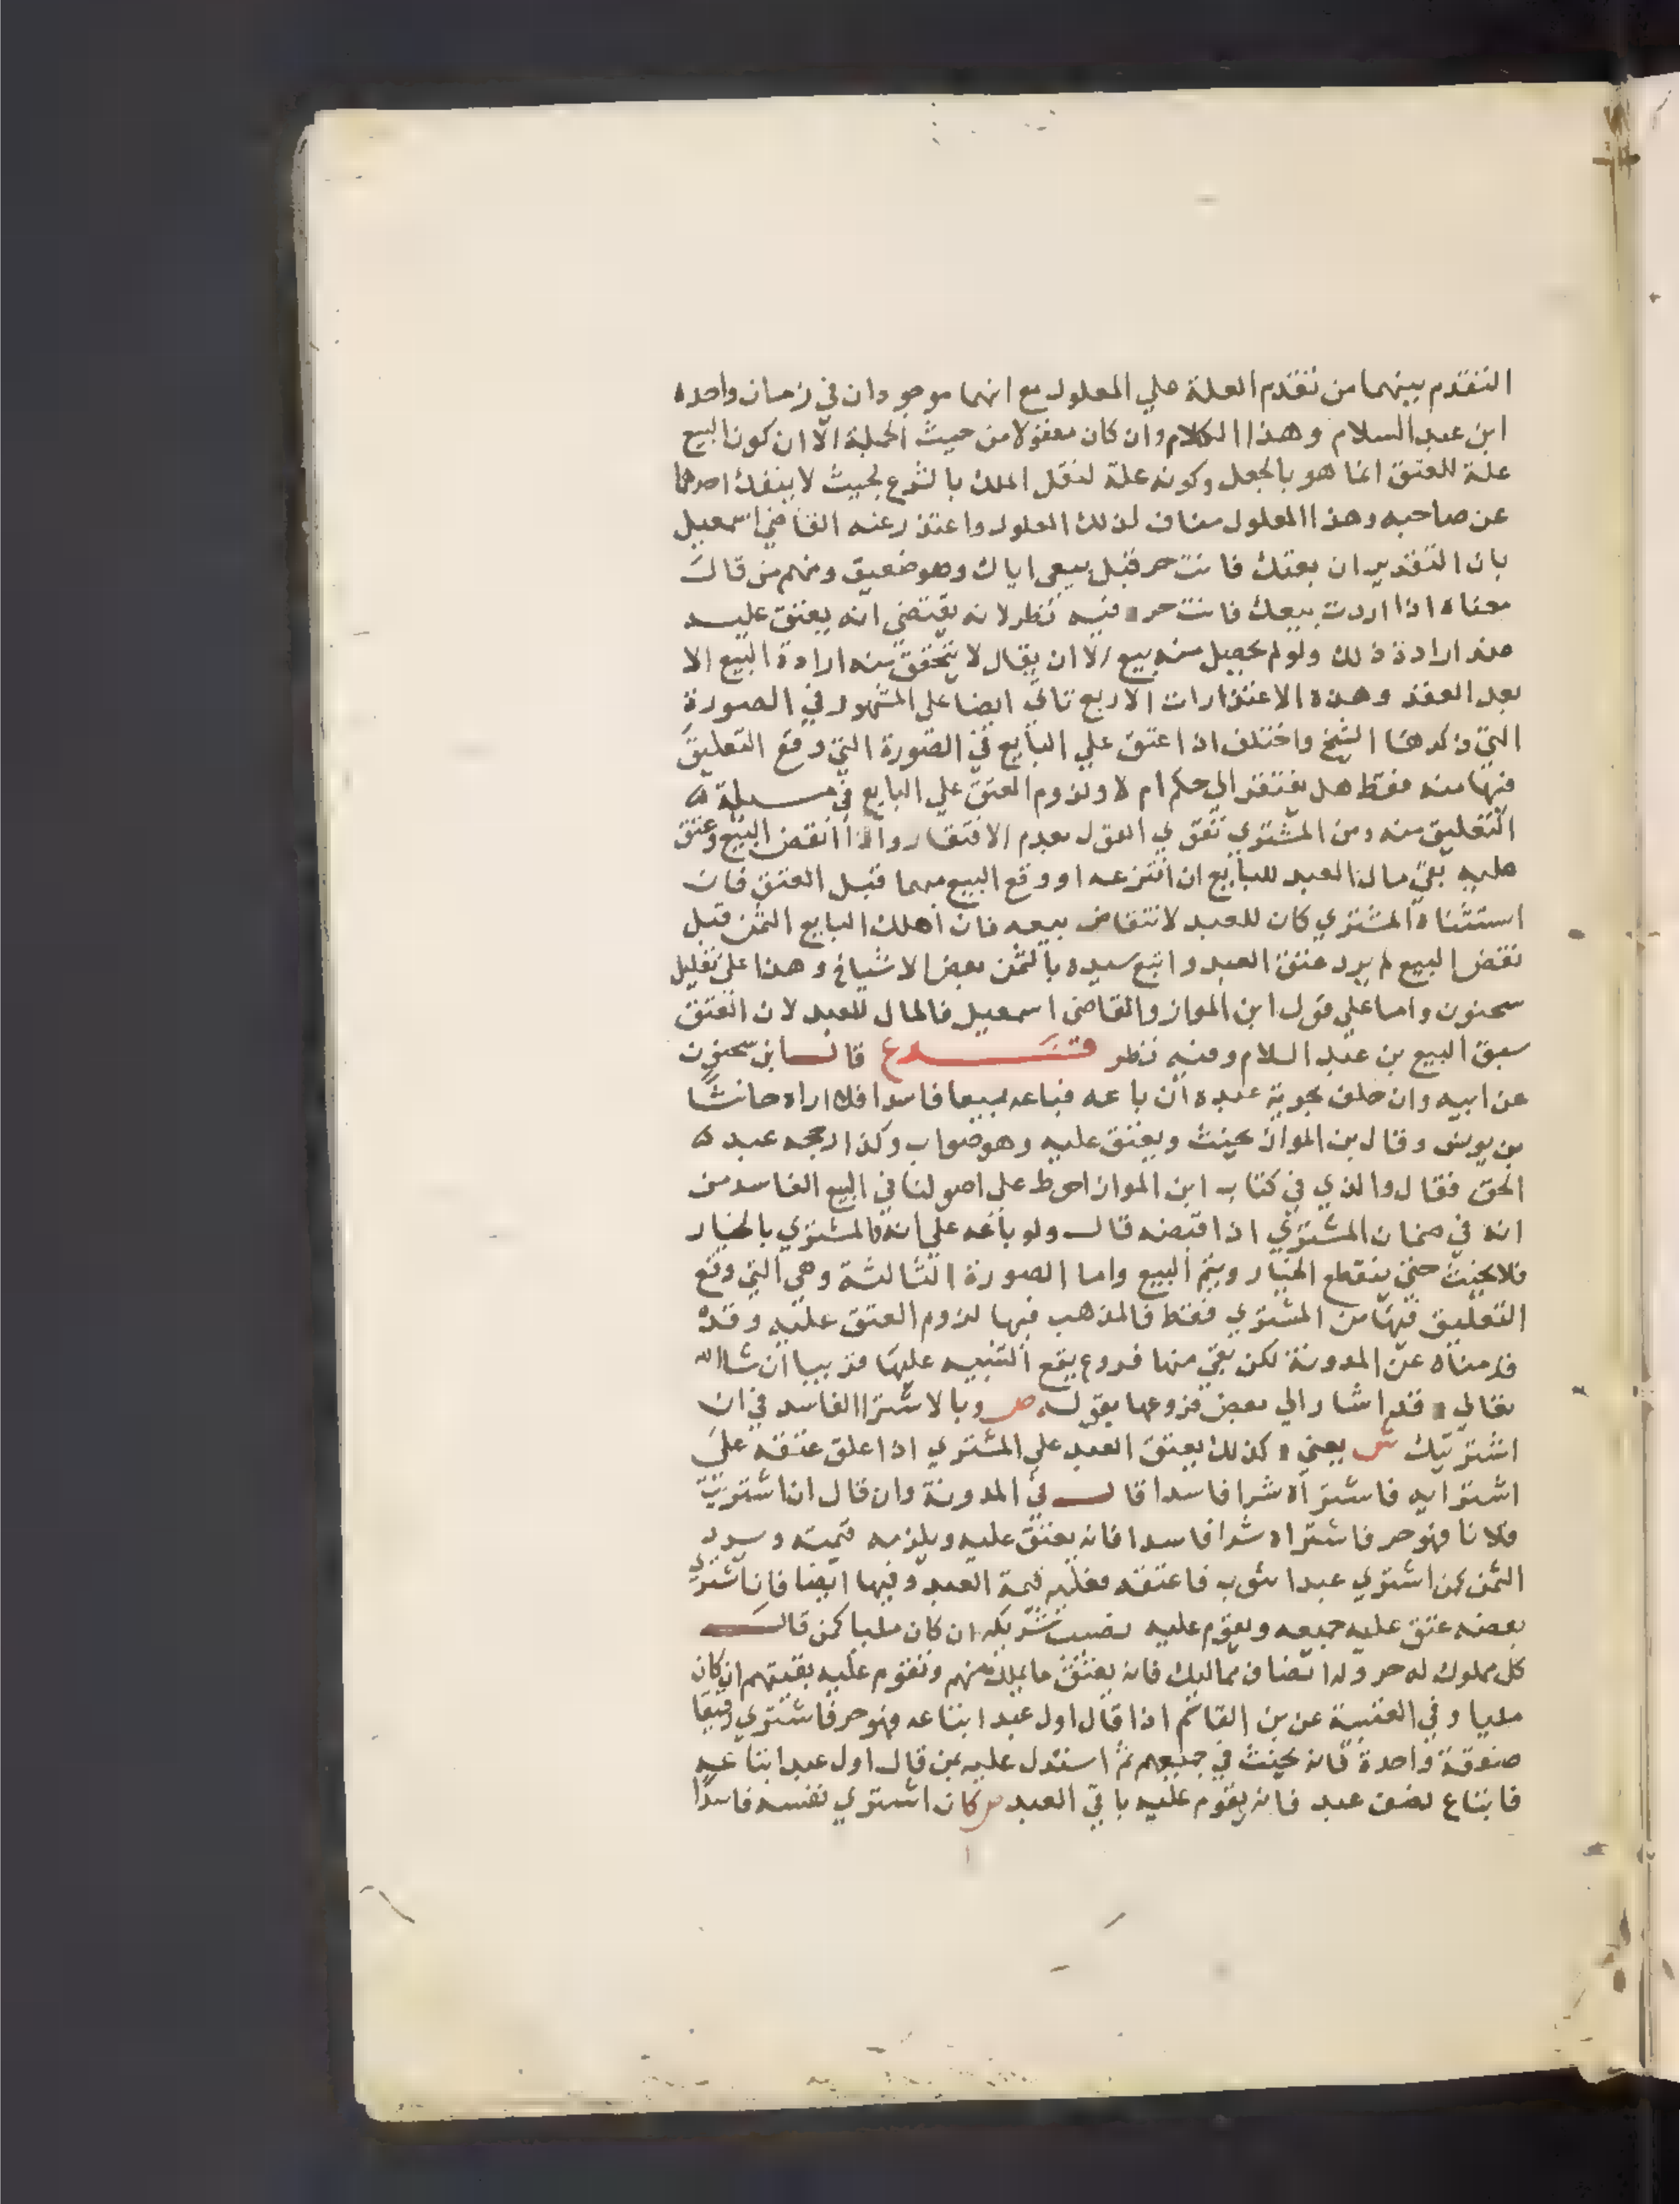 التقدم بينهما من تقدم العلة علي المعلول مع انهما موجودان في زمان واحده
ابن عبد السلام وهذا الكلام وان كان معقولا من حيث الجملة الا ان كون البيع
علة للعتق انما هو بالجعل وكونه علة لنقل الملك بالشرع بحيث لا ينفك احدهما
عن صاحبه وهذا المعلول مناف لذلك المعلول واعتذر عنه القاضي اسمعيل
بان التقدير ان بعتك فانت حر قبل بيعي اياك وهو ضعيف ومنهم من قال
معناه اذا اردت بيعك فانت حر وفيه نظر لانه يقتضي انه يعتق عليه
عند ارادة ذلك ولو لم يحصل منه بيع الا ان يقال لا يتحقق منه ارادة البيع الا
بعد العقد وهذه الاعتذارات الاربع تاتي ايضا علي المشهور في الصورة
التي ذكرها الشيخ واختلف اذا عتق علي البايع في الصورة التي وقع التعليق
فيها منه فقط هل يفتقر الي حكم ام لا ولزوم العتق علي البايع في مسيلة
التعليق منه ومن المشتري تقوي القول بعدم الافتقار واذا انقض البيع وعتق
عليه بقي مال العبد للبايع ان انتزعه او وقع البيع مبهما قبل العتق فان
استثناه المشتري كان للعبد لانتقاض بيعه فان اهلك البايع الثمن قبل
نقض البيع لم يرد عتق العبد واتبع سيده بالثمن بعض الاشياخ وهذا علي تعليل
سحنون واما علي قول ابن المواز والقاضي اسمعيل فالمال للعبد لان العتق
سبق البيع بن عبد السلام وفيه نظر فرع قال ابن سحنون
عن ابيه وان حلف بحرية عبده ان باعه فباعه بيعا فاسدا فلا اراه حانثا
بن يونس وقال بن المواز يحنث ويعتق عليه وهو صواب وكذا رجحه عبد
الحق فقال والذي في كتاب ابن المواز احوط علي اصولنا في البيع الفاسد من
انه في ضمان المشتري اذا قبضه قال ولو باعه علي انه المشتري بالخيار
فلا يحنث حتي ينقطع الخيار ويتم البيع واما الصورة الثالثة وهي التي وقع
التعليق فيها من المشتري فقط فالمذهب فيها لزوم العتق عليه وقد
قدمناه عن المدونة لكن بقي منها فروع يقع التنبيه عليها قريبا ان شا الله
تعالي وقد اشار الي بعض فروعها بقوله ص وبالاشترا الفاسد في ان
اشتريتك ش يعني وكذلك يعتق العبد علي المشتري اذا علق عتقه علي
اشترايه فاشتراه شرا فاسدا قال في المدونة وان قال ان اشتريت
فلانا فهو حر فاشتراه شرا فاسدا فانه يعتق عليه ويلزمه قيمته ويرد
الثمن كمن اشتري عبدا بثوب فاعتقه فعليه قيمة العبد وفيها ايضا فان اشتري
بعضه عتق عليه جميعه ويقوم عليه نصيب شريكه ان كان مليا كمن قال
كل مملوك له حر وله انصاف مماليك فانه يعتق ما يملك منهم وتقوم عليه بقيتهم ان كان
مليا وفي العتبية عن بن القاسم اذا قال اول عبد ابتاعه فهو حر فاشتري رقيقا
صفقة واحدة فانه يحنث في جميعهم ثم استدل عليه بمن قال اول عبد ابتاعه
فابتاع نصف عبد فانه يقوم عليه باقي العبد ص كان اشتري نفسه فاسدا